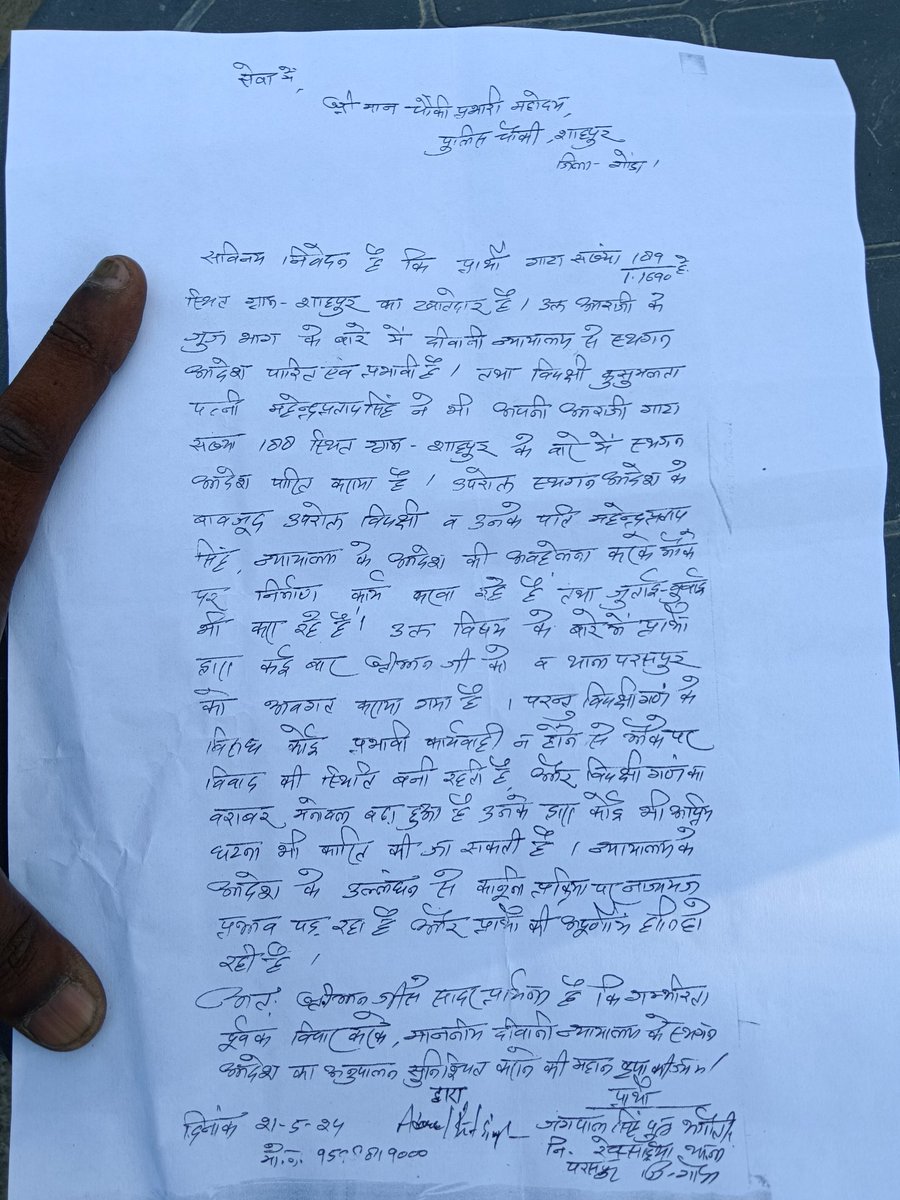 सेवा में,
श्री मान चौकी प्रभारी महोदय,
पुलिस चौकी, शाहपुर
जिला- गोंडा।
सविनय निवेदन है कि प्रार्थी गाटा संख्या 189/1.1690 हे.
स्थित ग्राम- शाहपुर का खातेदार है। उक्त आराजी के
भाग के बारे में दीवानी न्यायालय से स्थगन
आदेश पारित एवं प्रभावी है। तथा विपक्षी कुसुमलता
पत्नी महेन्द्रप्रताप सिंह ने भी अपनी आराजी गाटा
संख्या 188 स्थित ग्राम- शाहपुर के बारे में स्थगन
आदेश पारित कराया है। उपरोक्त स्थगन आदेश के
बावजूद उपरोक्त विपक्षी व उनके पति महेन्द्रप्रताप
सिंह, न्यायालय के आदेश की अवहेलना करके मौके
पर निर्माण कार्य करवा रहे हैं तथा जुताई-बुवाई
भी करा रहे हैं। उक्त विषय के बारे में प्रार्थी
द्वारा कई बार श्रीमान जी को व थाना परसपुर
को अवगत कराया गया है। परन्तु विपक्षीगणों के
विरुद्ध कोई प्रभावी कार्यवाही न होने से मौके पर
विवाद की स्थिति बनी रहती है, और विपक्षीगणों का
बराबर मनोबल बढ़ा हुआ है उनके द्वारा कोई भी अप्रिय
घटना भी कारित की जा सकती है। न्यायालय के
आदेश के उल्लंघन से कानूनी प्रक्रिया पर
प्रभाव पड़ रहा है और प्रार्थी की अपूर्णीय हानि हो
रही है।
अतः श्रीमान जी से सादर प्रार्थना है कि गम्भीरता
पूर्वक विचार करके, माननीय दीवानी न्यायालय के स्थगन
आदेश का अनुपालन सुनिश्चित कराने की महान कृपा कीजिये।
द्वारा प्रार्थी
दिनांक 21-5-24 जगपाल सिंह पुत्र
मो.नं. नि. थाना
परसपुर जि-गोंडा